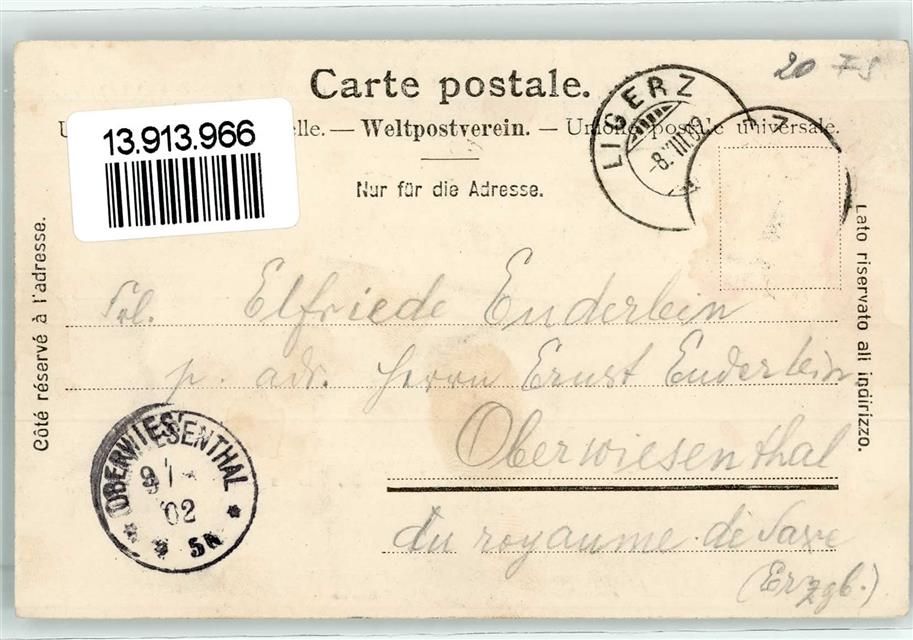 Carte postale.
20
13.913.966
elle. — Weltpostverein. — Union postale universale.
Nur für die Adresse.
LIGERZ
-8.III.02
Côté réservé à l'adresse.
Lato riservato ali indirizzo.
Frl. Elfriede Enderlein
p. adr. Herrn Ernst Enderlein
Oberwiesenthal
du royaume de Saxe
(Erzgb.)
OBERWIESENTHAL
02